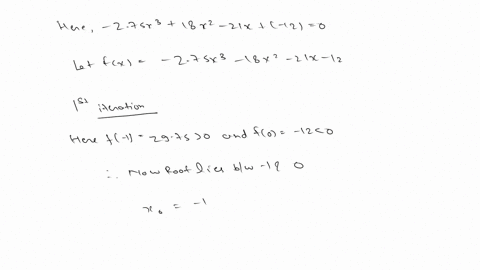 Here, -2.75x³ + 18x² - 21x + (-12) = 0
Let f(x) = -2.75x³ - 18x² - 21x - 12
1st iteration
Here f(-1) = 29.75 > 0 and f(0) = -12 < 0
∴ Now Root lies b/w -1 & 0
x₀ = -1